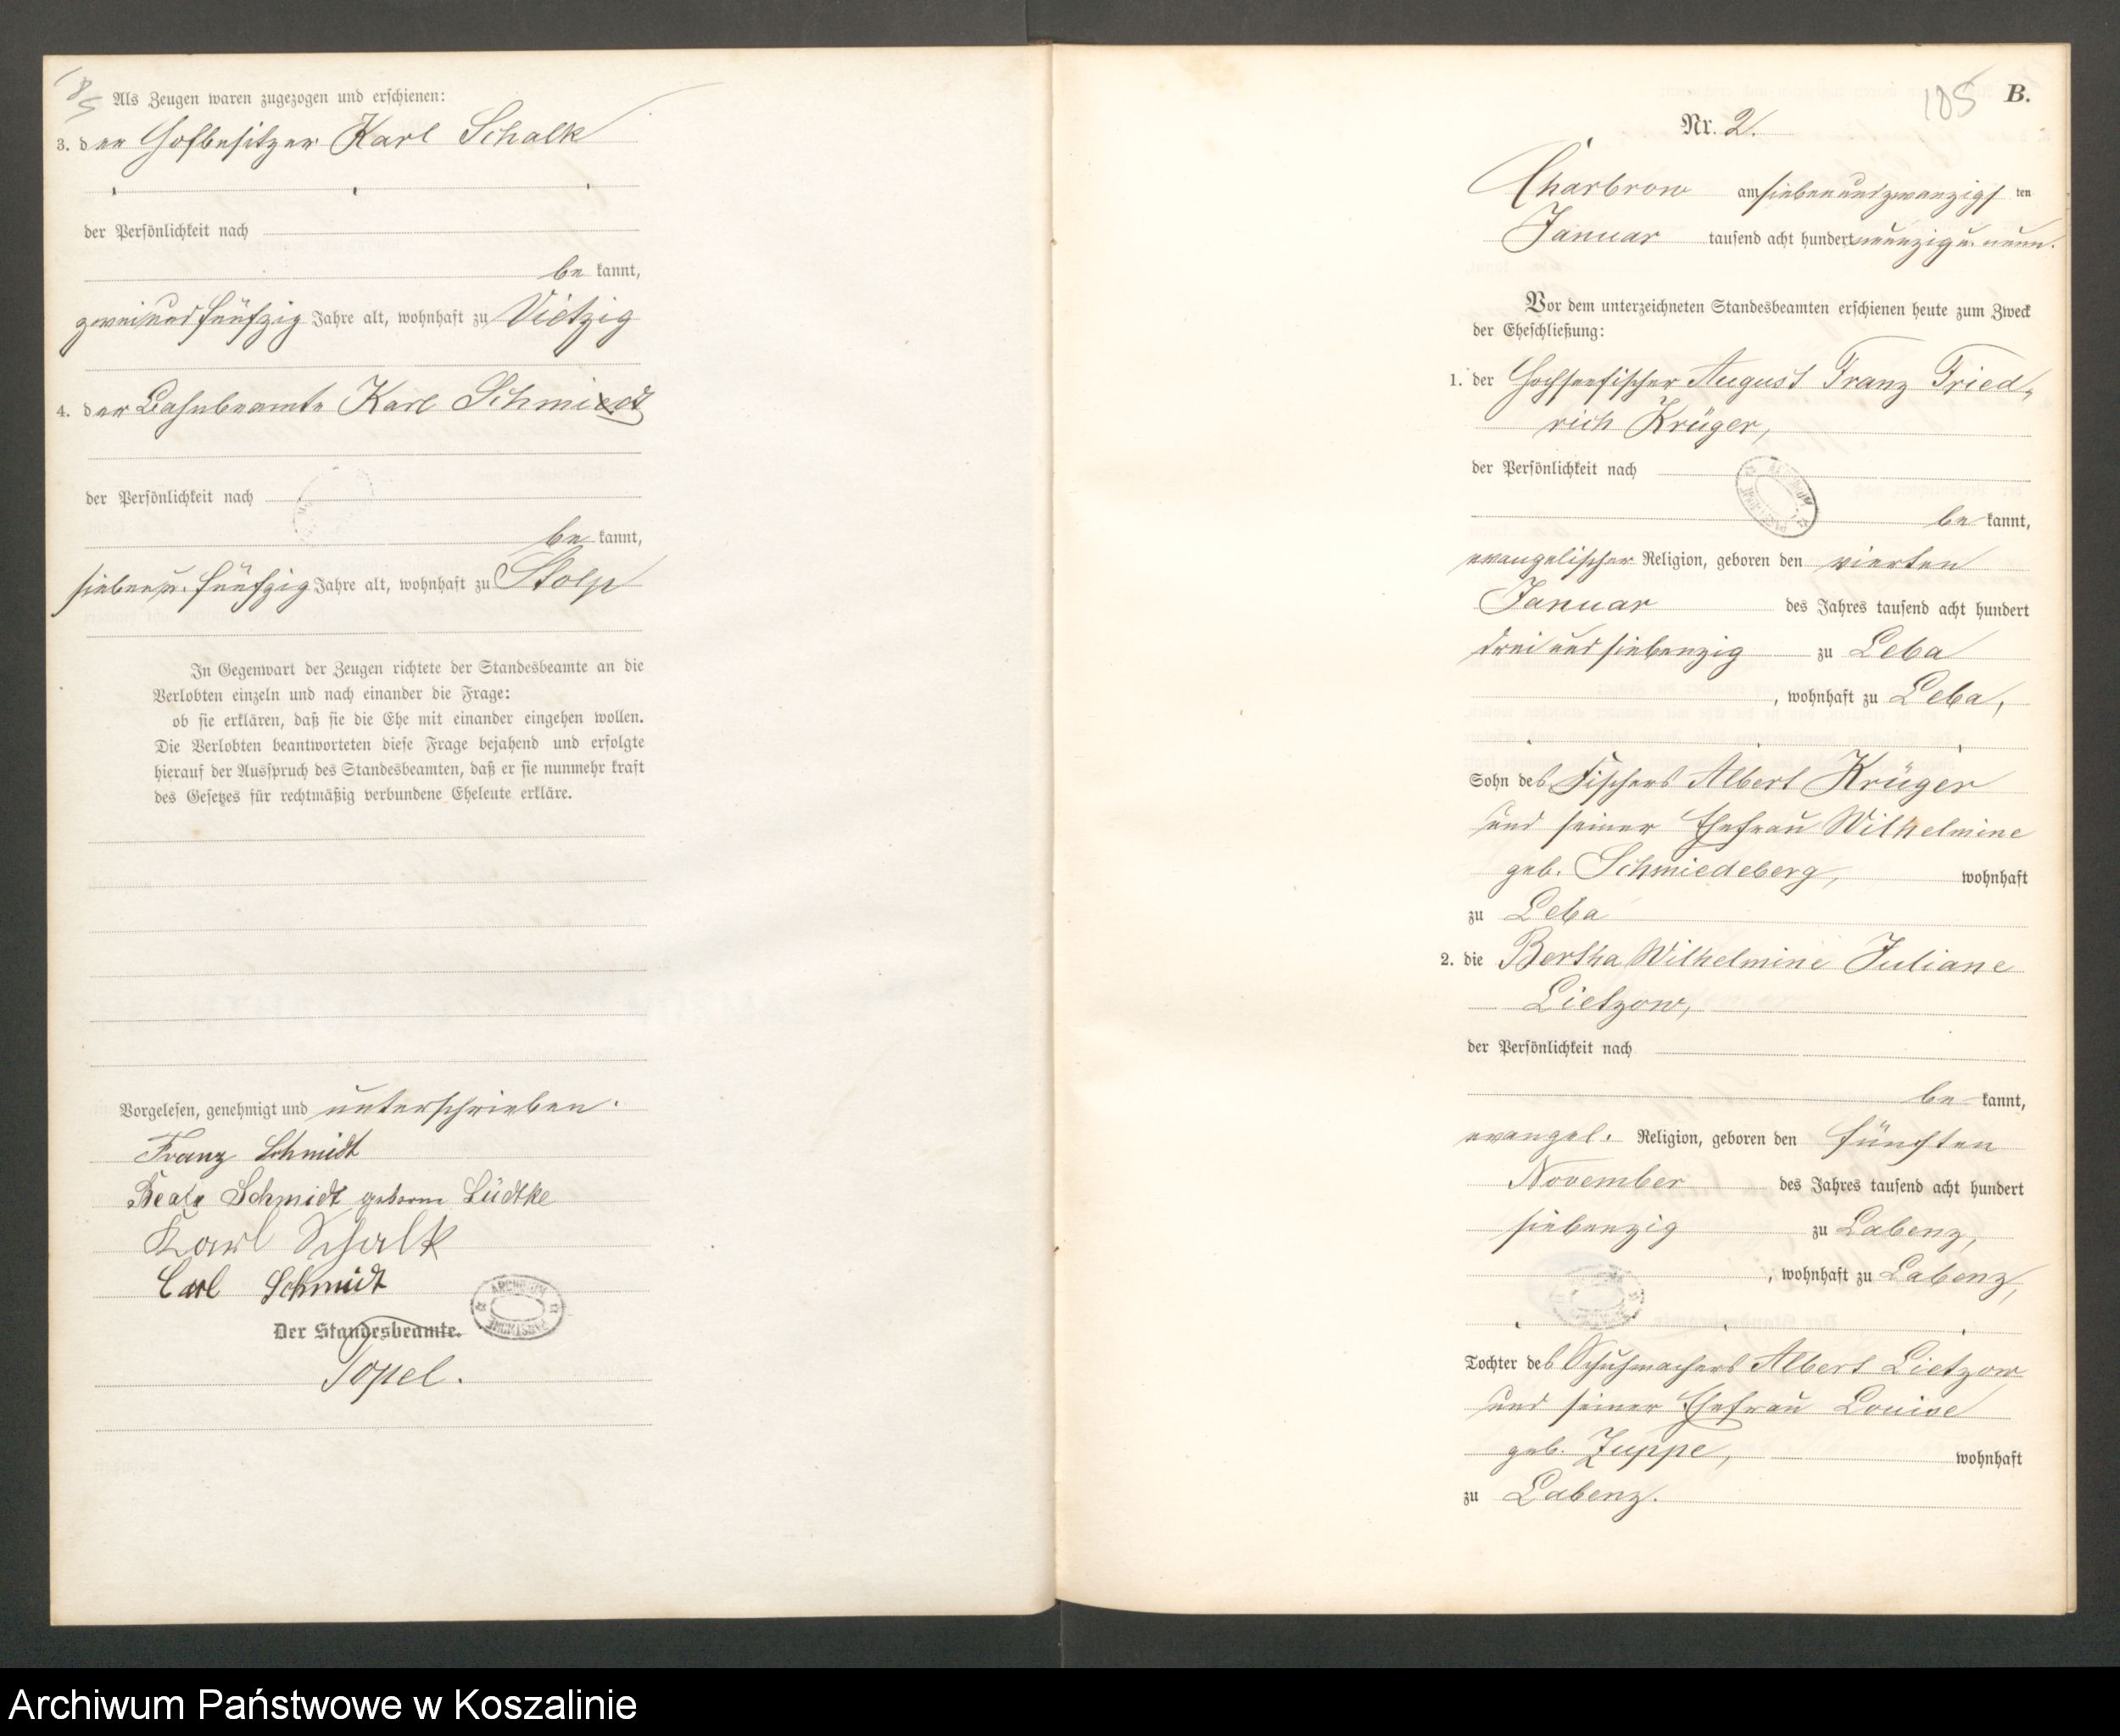 Als Zeugen waren zugezogen und erschienen:
3. der Hofbesitzer Karl Schalk
der Persönlichkeit nach
be kannt,
zweiundfünfzig Jahre alt, wohnhaft zu Vietzig
4. der Bahnbeamte Karl Schmidt
der Persönlichkeit nach
be kannt,
sieben u. fünfzig Jahre alt, wohnhaft zu Stolp
In Gegenwart der Zeugen richtete der Standesbeamte an die
Verlobten einzeln und nach einander die Frage:
ob sie erklären, daß sie die Ehe mit einander eingehen wollen.
Die Verlobten beantworteten diese Frage bejahend und erfolgte
hierauf der Ausspruch des Standesbeamten, daß er sie nunmehr kraft
des Gesetzes für rechtmäßig verbundene Eheleute erkläre.
Vorgelesen, genehmigt und unterschrieben.
Franz Schmidt
Beate Schmidt geborne Lüdtke
Karl Schalk
Carl Schmidt
Der Standesbeamte.
Topel.
105 B.
Nr. 2.
Charbrow am siebenundzwanzigs ten
Januar tausend acht hundert neunzig u. neun.
Vor dem unterzeichneten Standesbeamten erschienen heute zum Zweck
der Eheschließung:
1. der Hochseefischer August Franz Fried-
rich Krüger,
der Persönlichkeit nach
be kannt,
evangelischer Religion, geboren den vierten
Januar des Jahres tausend acht hundert
drei und siebenzig zu Leba
, wohnhaft zu Leba,
Sohn des Fischers Albert Krüger
und seiner Ehefrau Wilhelmine
geb. Schmiedeberg, wohnhaft
zu Leba
2. die Bertha Wilhelmine Juliane
Lietzow,
der Persönlichkeit nach
be kannt,
evangel. Religion, geboren den fünften
November des Jahres tausend acht hundert
siebenzig zu Labenz,
, wohnhaft zu Labenz,
Tochter des Schuhmachers Albert Lietzow
und seiner Ehefrau Louise
geb. Zuppe, wohnhaft
zu Labenz.
Archiwum Państwowe w Koszalinie